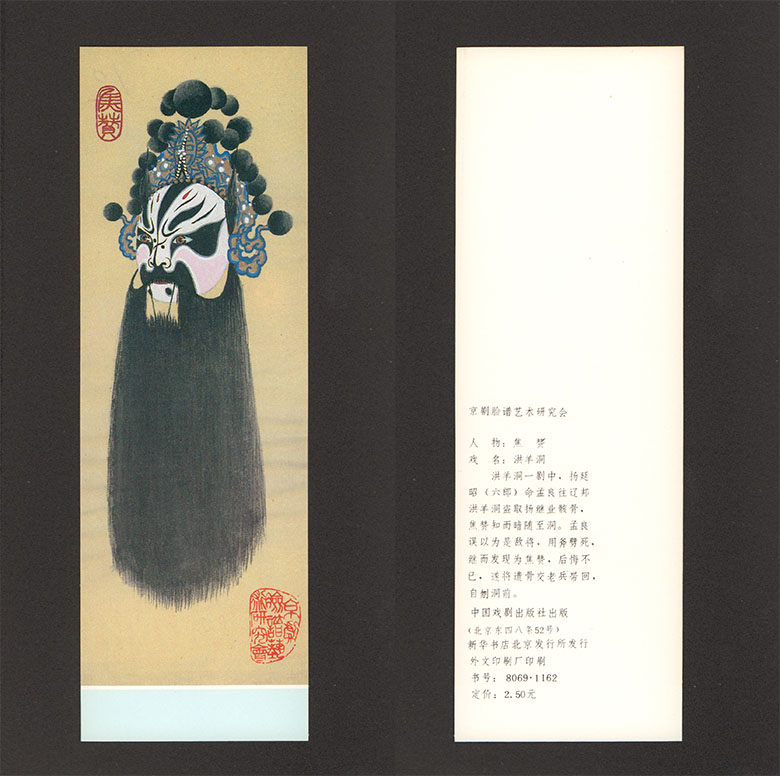 焦赞
京剧脸谱艺术研究会
京剧脸谱艺术研究会
人　物：焦　赞
戏　名：洪羊洞
洪羊洞一剧中，扬延
昭（六郎）命孟良往辽邦
洪羊洞盗取扬继业骸骨，
焦赞知而暗随至洞。孟良
误以为是敌将，用斧劈死，
继而发现为焦赞，后悔不
已，遂将遗骨交老兵带回，
自刎洞前。
中国戏剧出版社出版
（北京东四八条52号）
新华书店北京发行所发行
外文印刷厂印刷
书号：8069·1162
定价：2.50元